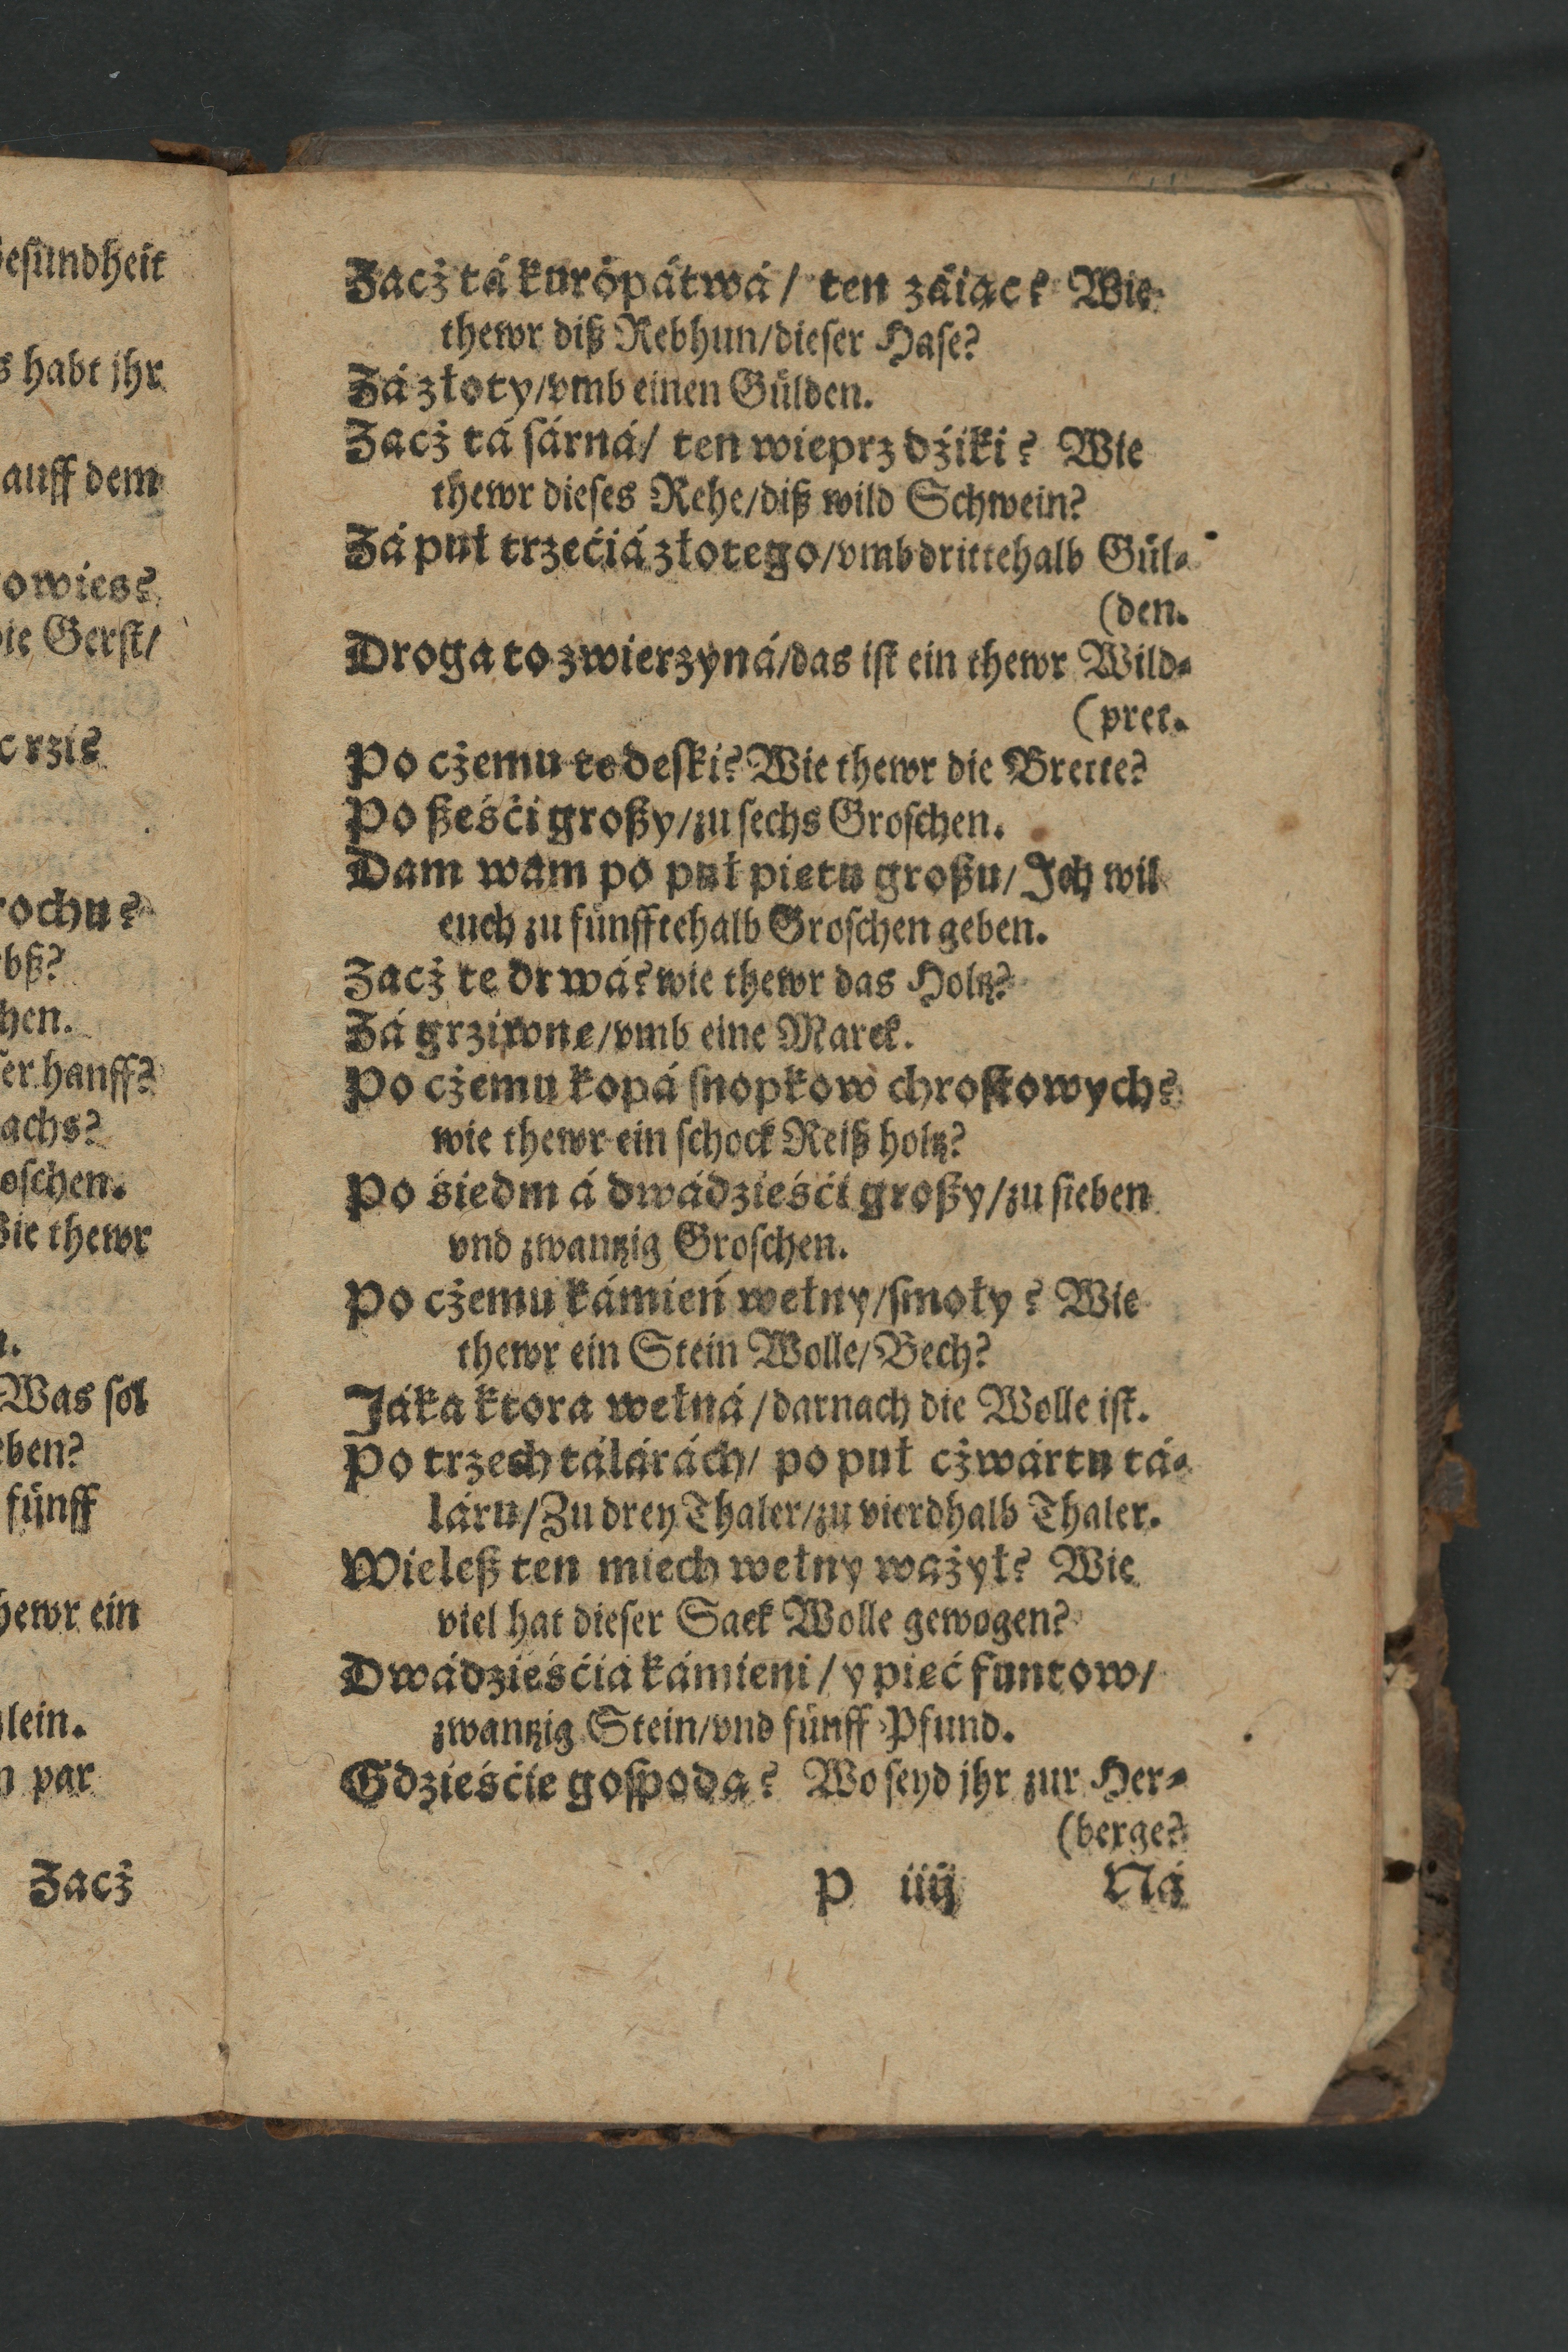 esundheit
s habt jhr
auff dem
owies?
ie Gerst/
c rzi?
rochu?
bß?
hen.
er hanff?
achs?
oschen.
ie thewr
Was sol
eben?
fünff
hewr ein
lein.
n par
Zacż
Zacż tá kuropátwá/ ten záiąc? Wie
thewr diß Rebhun/dieser Hase?
Zá złoty/vmb einen Gülden.
Zacż tá sárná/ ten wieprz dźiki? Wie
thewr dieses Rehe/diß wild Schwein?
Zá puł trzećiá złotego/vmb drittehalb Gül-
(den.
Droga to zwierzyná/das ist ein thewr Wild-
(pret.
Po cżemu te deski? Wie thewr die Brette?
Po ßeśći großy/zu sechs Groschen.
Dam wam po puł pietu großu/Ich wil
euch zu fünfftehalb Groschen geben.
Zacż te drwá? wie thewr das Holtz?
Zá grziwne/vmb eine Marck.
Po cżemu kopá snopkow chrostowych?
wie thewr ein schock Reiß holtz?
Po śiedm á dwádzieśći großy/zu sieben
vnd zwantzig Groschen.
Po cżemu kámień wełny/smoły? Wie
thewr ein Stein Wolle/Bech?
Jáka ktora wełná/darnach die Wolle ist.
Po trzech tálárách/ po puł cżwártu tá-
láru/Zu drey Thaler/zu vierdhalb Thaler.
Wieleß ten miech wełny ważył? Wie
viel hat dieser Sack Wolle gewogen?
Dwádzieśćiá kámieni/y pieć funtow/
zwantzig Stein/vnd fünff Pfund.
Gdzieśćie gospodą? Wo seyd jhr zur Her-
(berge?
P iiij Ná